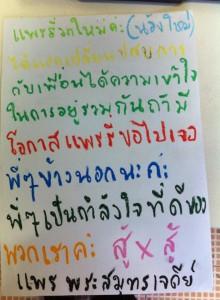 แพรรี่จากใหม่ค่ะ (น้องใหม่)
ได้แลกเปลี่ยนประสบการ
กับเพื่อนได้ความเข้าใจ
ในการอยู่รวมกันถ้ามี
โอกาสแพรรี่ขอไปเจอ
พี่ๆข้างนอกนะค่ะ
พี่ๆเป็นกำลังใจที่ดีของ
พวกเราค่ะ สู้ x สู้
แพร พระสมุทรเจดีย์